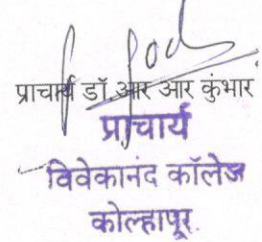 प्राचार्य डॉ आर आर कुंभार
प्राचार्य
विवेकानंद कॉलेज
कोल्हापूर.